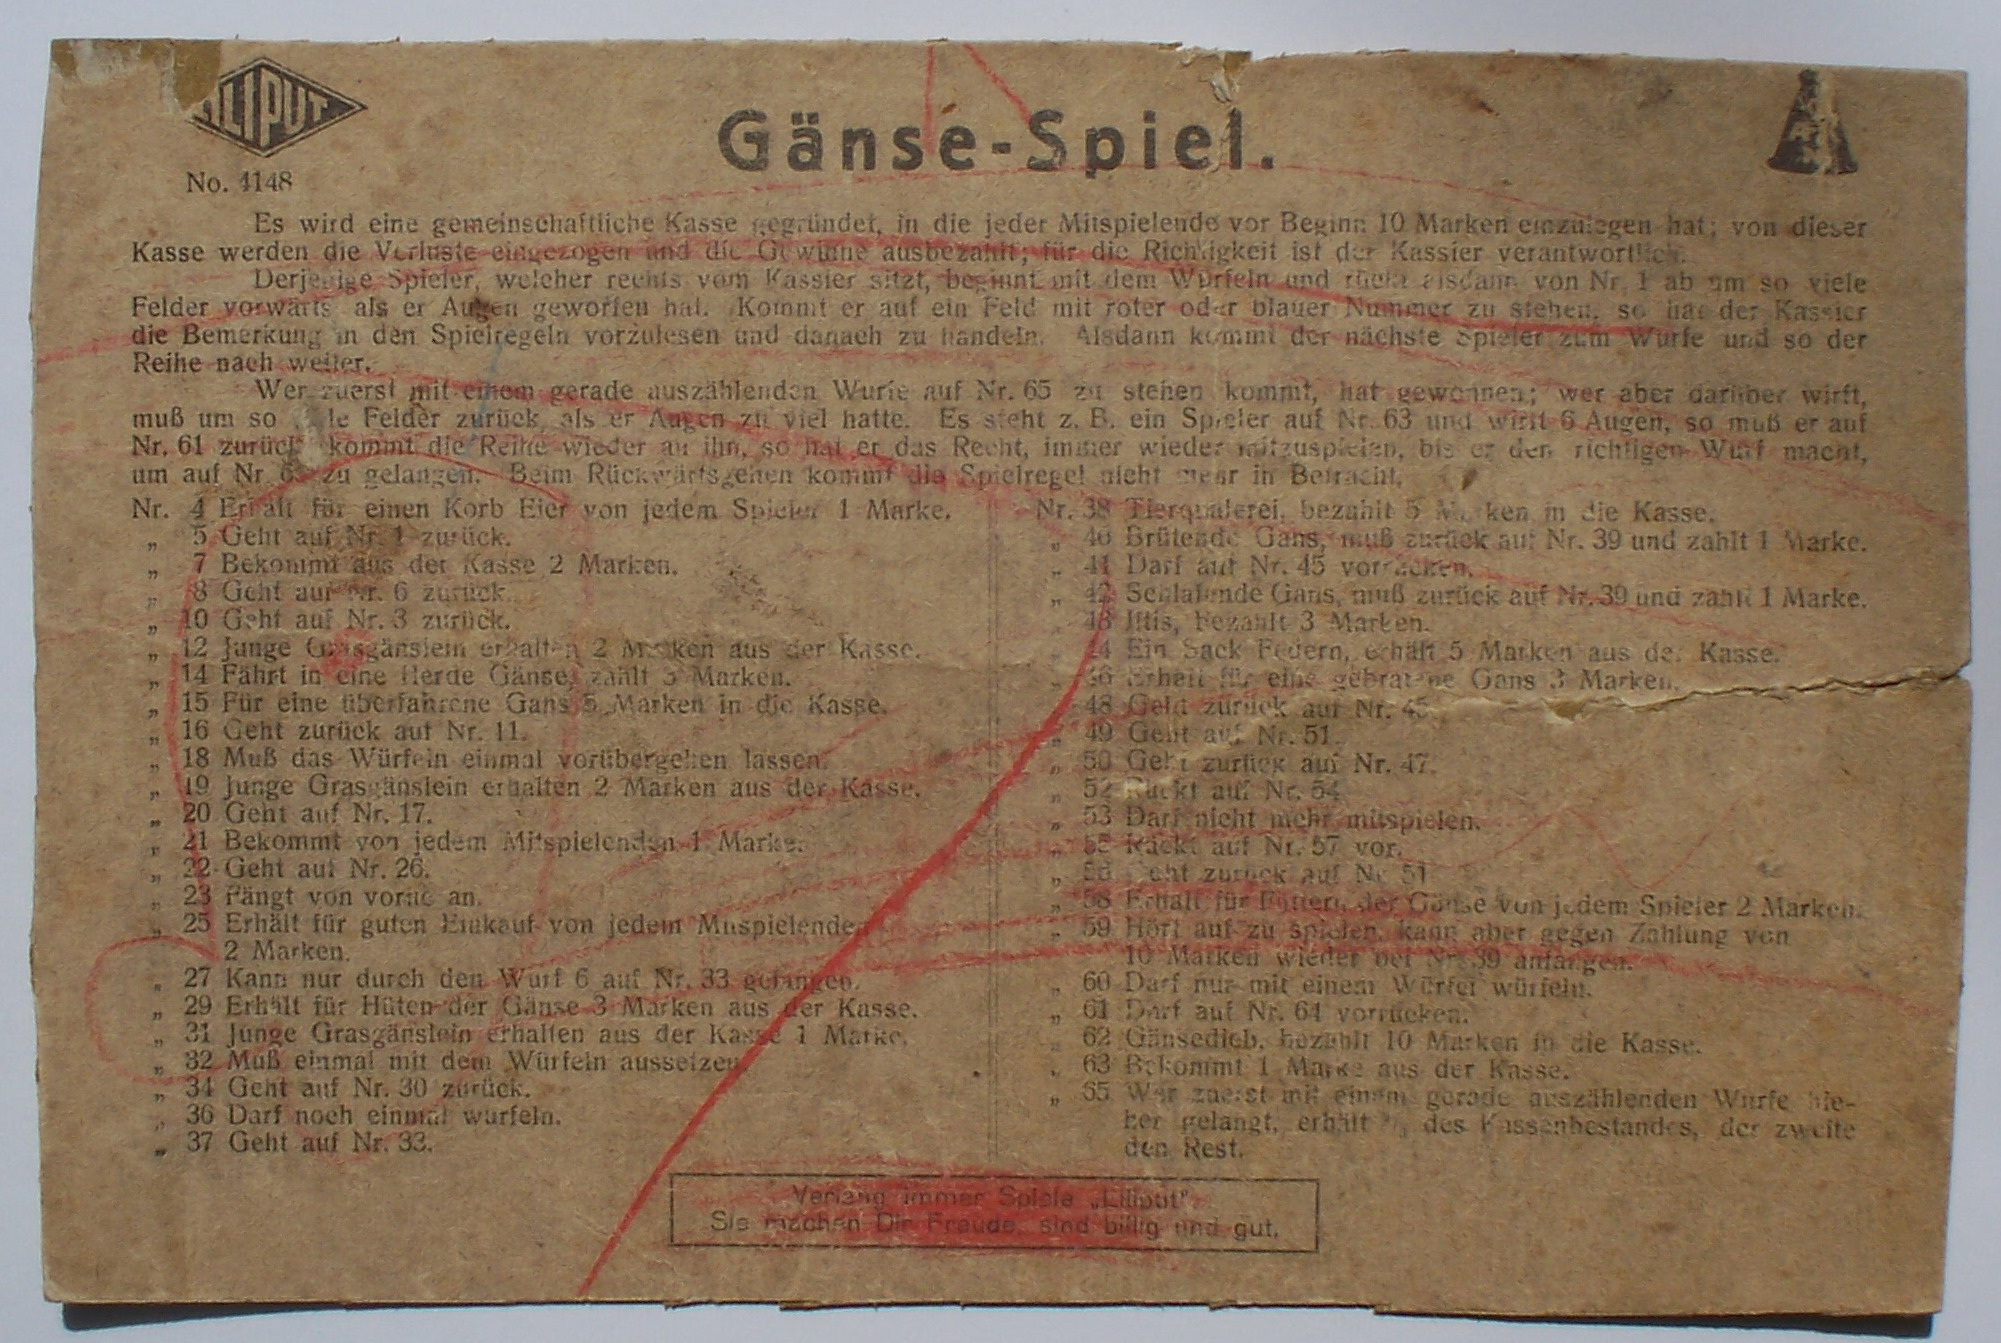 LILIPUT
Gänse-Spiel.
No. 4148
Es wird eine gemeinschaftliche Kasse gegründet, in die jeder Mitspielende vor Beginn 10 Marken einzulegen hat; von dieser
Kasse werden die Verluste eingezogen und die Gewinne ausbezahlt; für die Richtigkeit ist der Kassier verantwortlich.
Derjenige Spieler, welcher rechts vom Kassier sitzt, beginnt mit dem Würfeln und rückt alsdann von Nr. 1 ab um so viele
Felder vorwärts als er Augen geworfen hat. Kommt er auf ein Feld mit roter oder blauer Nummer zu stehen, so hat der Kassier
die Bemerkung in den Spielregeln vorzulesen und danach zu handeln. Alsdann kommt der nächste Spieler zum Wurfe und so der
Reihe nach weiter.
Wer zuerst mit einem gerade auszählenden Wurfe auf Nr. 65 zu stehen kommt, hat gewonnen; wer aber darüber wirft,
muß um so Felder zurück, als er Augen zu viel hatte. Es steht z. B. ein Spieler auf Nr. 63 und wirft 6 Augen, so muß er auf
Nr. 61 zurück kommt die Reihe wieder an ihn, so hat er das Recht, immer wieder mitzuspielen, bis er den richtigen Wurf macht,
um auf Nr. zu gelangen. Beim Rückwärtsgehen kommt die Spielregel nicht mehr in Betracht.
Nr. 4 Erhält für einen Korb Eier von jedem Spieler 1 Marke.
„ 5 Geht auf Nr. 1 zurück.
„ 7 Bekommt aus der Kasse 2 Marken.
„ 8 Geht auf Nr. 6 zurück.
„ 10 Geht auf Nr. 3 zurück.
„ 12 Junge Grasgänslein erhalten 2 Marken aus der Kasse.
„ 14 Fährt in eine Herde Gänse, zahlt 5 Marken.
„ 15 Für eine überfahrene Gans 5 Marken in die Kasse.
„ 16 Geht zurück auf Nr. 11.
„ 18 Muß das Würfeln einmal vorübergehen lassen.
„ 19 Junge Grasgänslein erhalten 2 Marken aus der Kasse.
„ 20 Geht auf Nr. 17.
„ 21 Bekommt von jedem Mitspielenden 1 Marke.
„ 22 Geht auf Nr. 26.
„ 23 Fängt von vorne an.
„ 25 Erhält für guten Einkauf von jedem Mitspielenden
2 Marken.
„ 27 Kann nur durch den Wurf 6 auf Nr. 33 gelangen.
„ 29 Erhält für Hüten der Gänse 3 Marken aus der Kasse.
„ 31 Junge Grasgänslein erhalten aus der Kasse 1 Marke.
„ 32 Muß einmal mit dem Würfeln aussetzen.
„ 34 Geht auf Nr. 30 zurück.
„ 36 Darf noch einmal würfeln.
„ 37 Geht auf Nr. 33.
Nr. 38 Tierquälerei, bezahlt 5 Marken in die Kasse.
„ 40 Brütende Gans, muß zurück auf Nr. 39 und zahlt 1 Marke.
„ 41 Darf auf Nr. 45 vorrücken.
„ 42 Schlafende Gans, muß zurück auf Nr. 39 und zahlt 1 Marke.
„ 43 Iltis, bezahlt 3 Marken.
„ 44 Ein Sack Federn, erhält 5 Marken aus der Kasse.
„ 46 Erhält für eine gebratene Gans 3 Marken.
„ 48 Geht zurück auf Nr. 45.
„ 49 Geht auf Nr. 51.
„ 50 Geht zurück auf Nr. 47.
„ 52 Rückt auf Nr. 54
„ 53 Darf nicht mehr mitspielen.
„ 55 Rückt auf Nr. 57 vor.
„ 56 Geht zurück auf Nr. 51
„ 58 Erhält für Füttern der Gänse von jedem Spieler 2 Marken.
„ 59 Hört auf zu spielen, kann aber gegen Zahlung von
10 Marken wieder bei Nr. 39 anfangen.
„ 60 Darf nur mit einem Würfel würfeln.
„ 61 Darf auf Nr. 64 vorrücken.
„ 62 Gänsedieb, bezahlt 10 Marken in die Kasse.
„ 63 Bekommt 1 Marke aus der Kasse.
„ 65 Wer zuerst mit einem gerade auszählenden Wurfe hie-
her gelangt, erhält des Kassenbestandes, der zweite
den Rest.
Verlang immer Spiele „Liliput“
Sie machen Dir Freude, sind billig und gut.